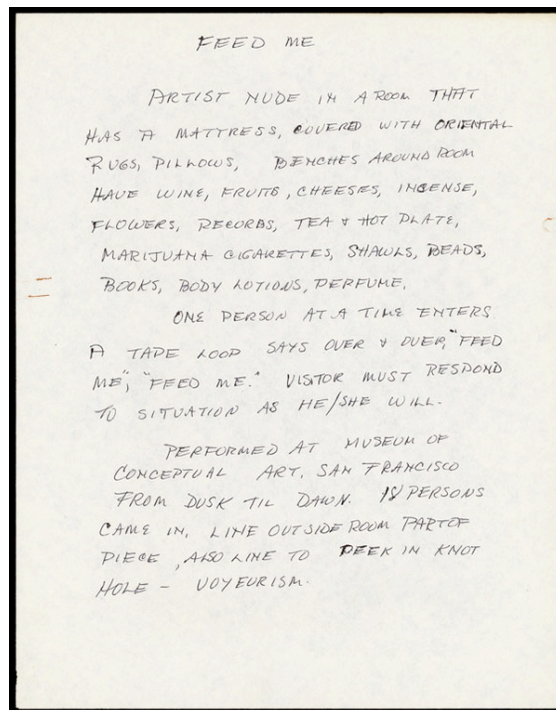 FEED ME
ARTIST NUDE IN A ROOM THAT
HAS A MATTRESS, COVERED WITH ORIENTAL
RUGS, PILLOWS, BENCHES AROUND ROOM
HAVE WINE, FRUITS, CHEESES, INCENSE,
FLOWERS, RECORDS, TEA & HOT PLATE,
MARIJUANA CIGARETTES, SHAWLS, BEADS,
BOOKS, BODY LOTIONS, PERFUME.
ONE PERSON AT A TIME ENTERS
A TAPE LOOP SAYS OVER & OVER, "FEED
ME", "FEED ME." VISITOR MUST RESPOND
TO SITUATION AS HE/SHE WILL.
PERFORMED AT MUSEUM OF
CONCEPTUAL ART, SAN FRANCISCO
FROM DUSK TIL DAWN. 18 PERSONS
CAME IN, LINE OUTSIDE ROOM PART OF
PIECE, ALSO LINE TO PEEK IN KNOT
HOLE – VOYEURISM.